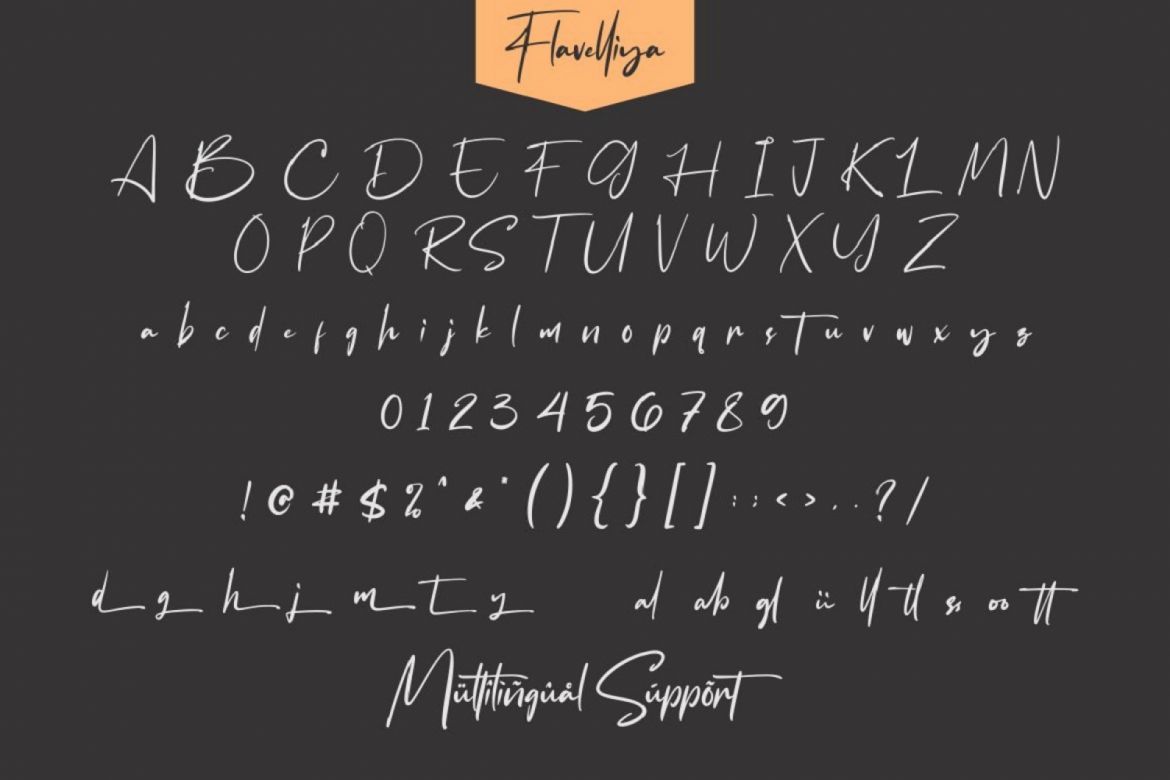 Flavelliya
A B C D E F G H I J K L M N
O P Q R S T U V W X Y Z
a b c d e f g h i j k l m n o p q r s t u v w x y z
0 1 2 3 4 5 6 7 8 9
! @ # $ % ^ & * ( ) { } [ ] : ; < > , . ? /
d g h j m t y al ab gl ii ll tl ss oo tt
Mültilìñgûål Súppõrt